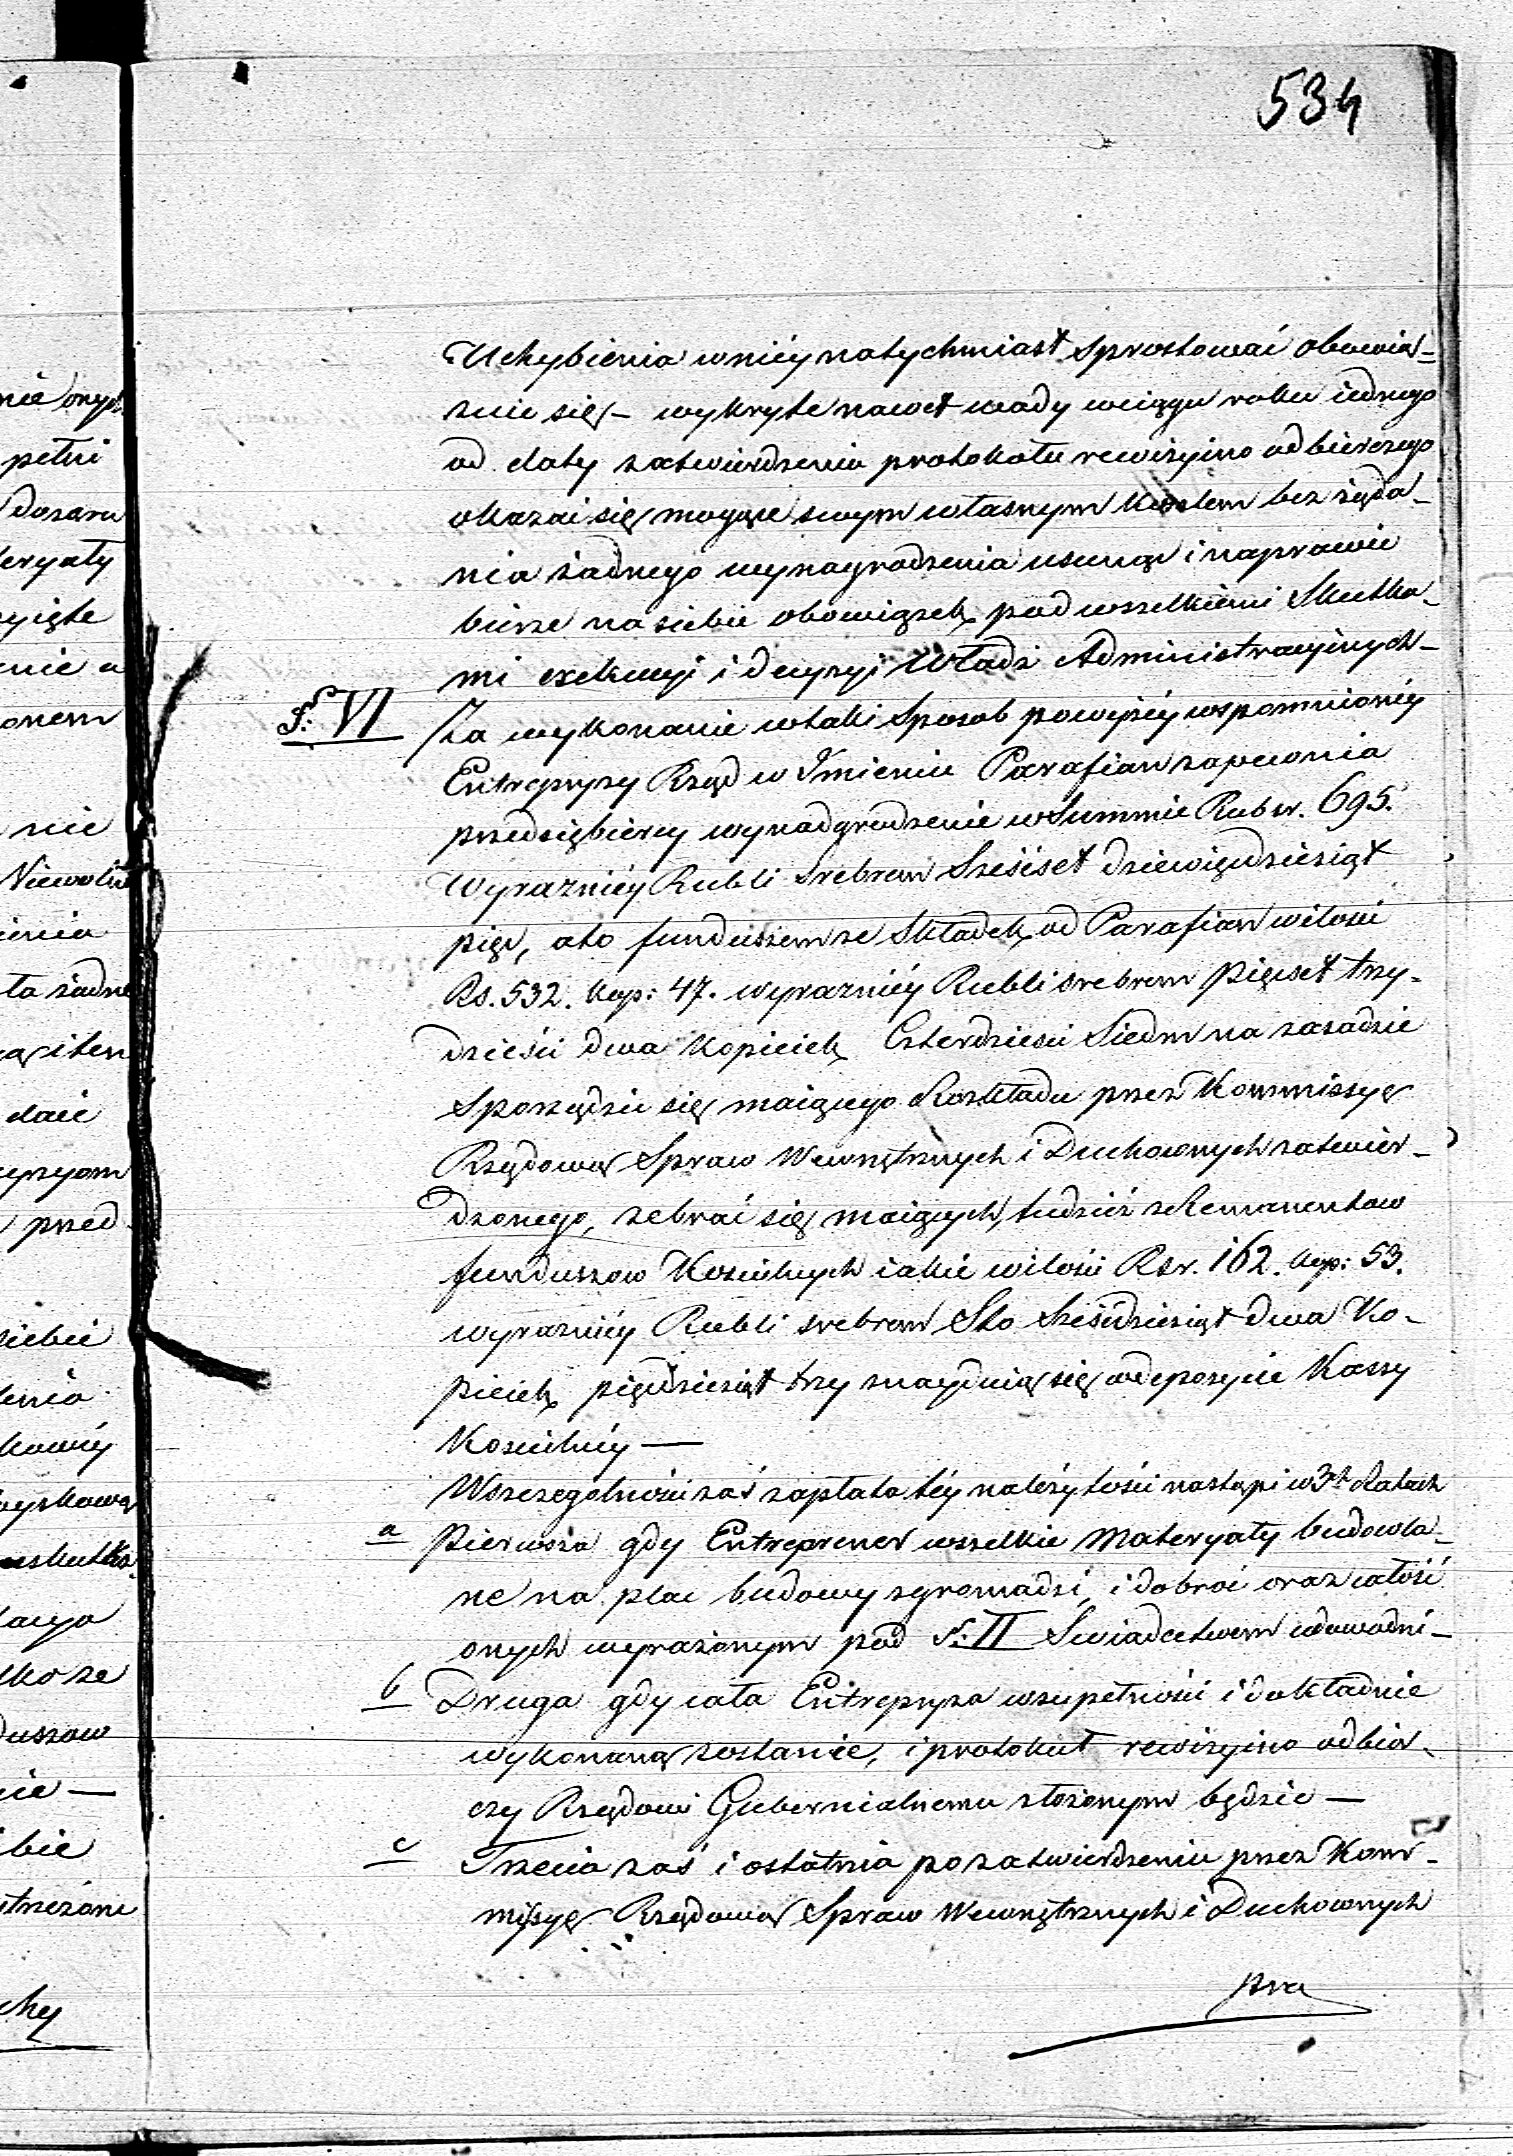 534
Uchybienia w niéy natychmiast sprostować obowią=
zuie się – wykryte nawet wady wciągu roku iednego
od daty zatwierdzenia protokołu rewizyino odbiorczego
okazać się mogące swym własnym kosztem bez żąda-
nia żadnego wynagrodzenia usunąć i naprawić
bierze na siebie obowiązek pod wszelkiemi Skutka-
mi exekucyi i decyzyi Władz Administracyinych –
S: VI Za wykonanie wtaki Sposob powyżéy wspomnionéy
Entrepryzy Rząd w Imieniu Parafian zapewnia
przedsiębiercy wynadgrodzenie w Summie Rub sr. 695.
Wyraznićy Rubli Srebrem Sześćset dziewięćdziesiąt
pięć, ato funduszem ze Składek od Parafian wilości
Rs. 532. kop: 47. wyraznićy Rubli srebrem Pięćset trzy-
dzieści dwa Kopieiek Czterdzieści Siedm na zasadzie
Sporządzić się maiącego Rozkładu przez Kommissyę
Rządową Spraw Wewnętrznych i Duchownych zatwier-
dzonego, zebrać się maiących, tudzież z Remanentow
funduszow Koscielnych iakie wilości Rsr. 162. kop: 53.
wyraznićy Rubli srebrem Sto Sześćdziesiąt dwa Ko-
pieiek pięćdziesiąt trzy znayduią się wdepozycie Kassy
Koscielnéy —
Wszczególności zaś zapłata téy należytości nastąpi w 3ch Ratach
a Pierwsza gdy Entreprener wszelkie Materyały budowla-
ne na plac budowy zgromadzi, i dobroć oraz całość
onych wyrażonym pod S: II Swiadectwem udowodni –
b Druga gdy cała Entrepryza wzupełności i dokładnie
wykonaną zostanie, i protokuł rewizyino odbior-
czy Rządowi Gubernialnemu złożonym będzie —
c Trzecia zaś i ostatnia po zatwierdzeniu przez Kom-
missyę Rządową Spraw Wewnętrznych i Duchownych
pro